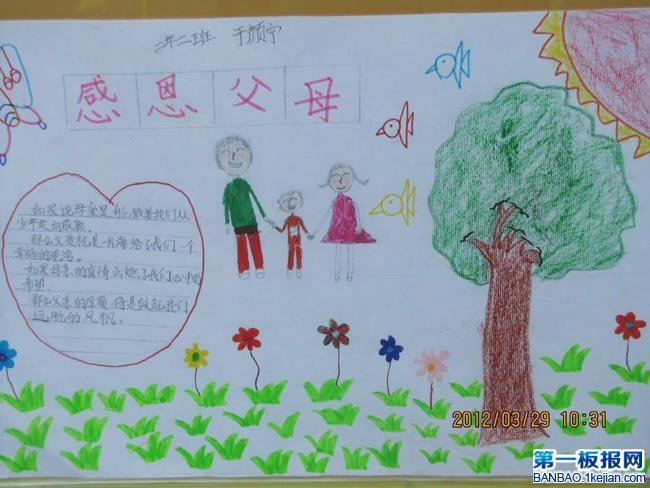 二年二班 于颜宁
感恩父母
如果说母亲是船,载着我们从
少年走向成熟。
那么父爱就是一片海给了我们一个
幸福的港湾。
如果母亲的真情点燃了我们心中的
希望
那么父亲的厚爱将是鼓起我们
远航的风帆。
2012/03/29 10:31
第一板报网
BANBAO.1kejian.com